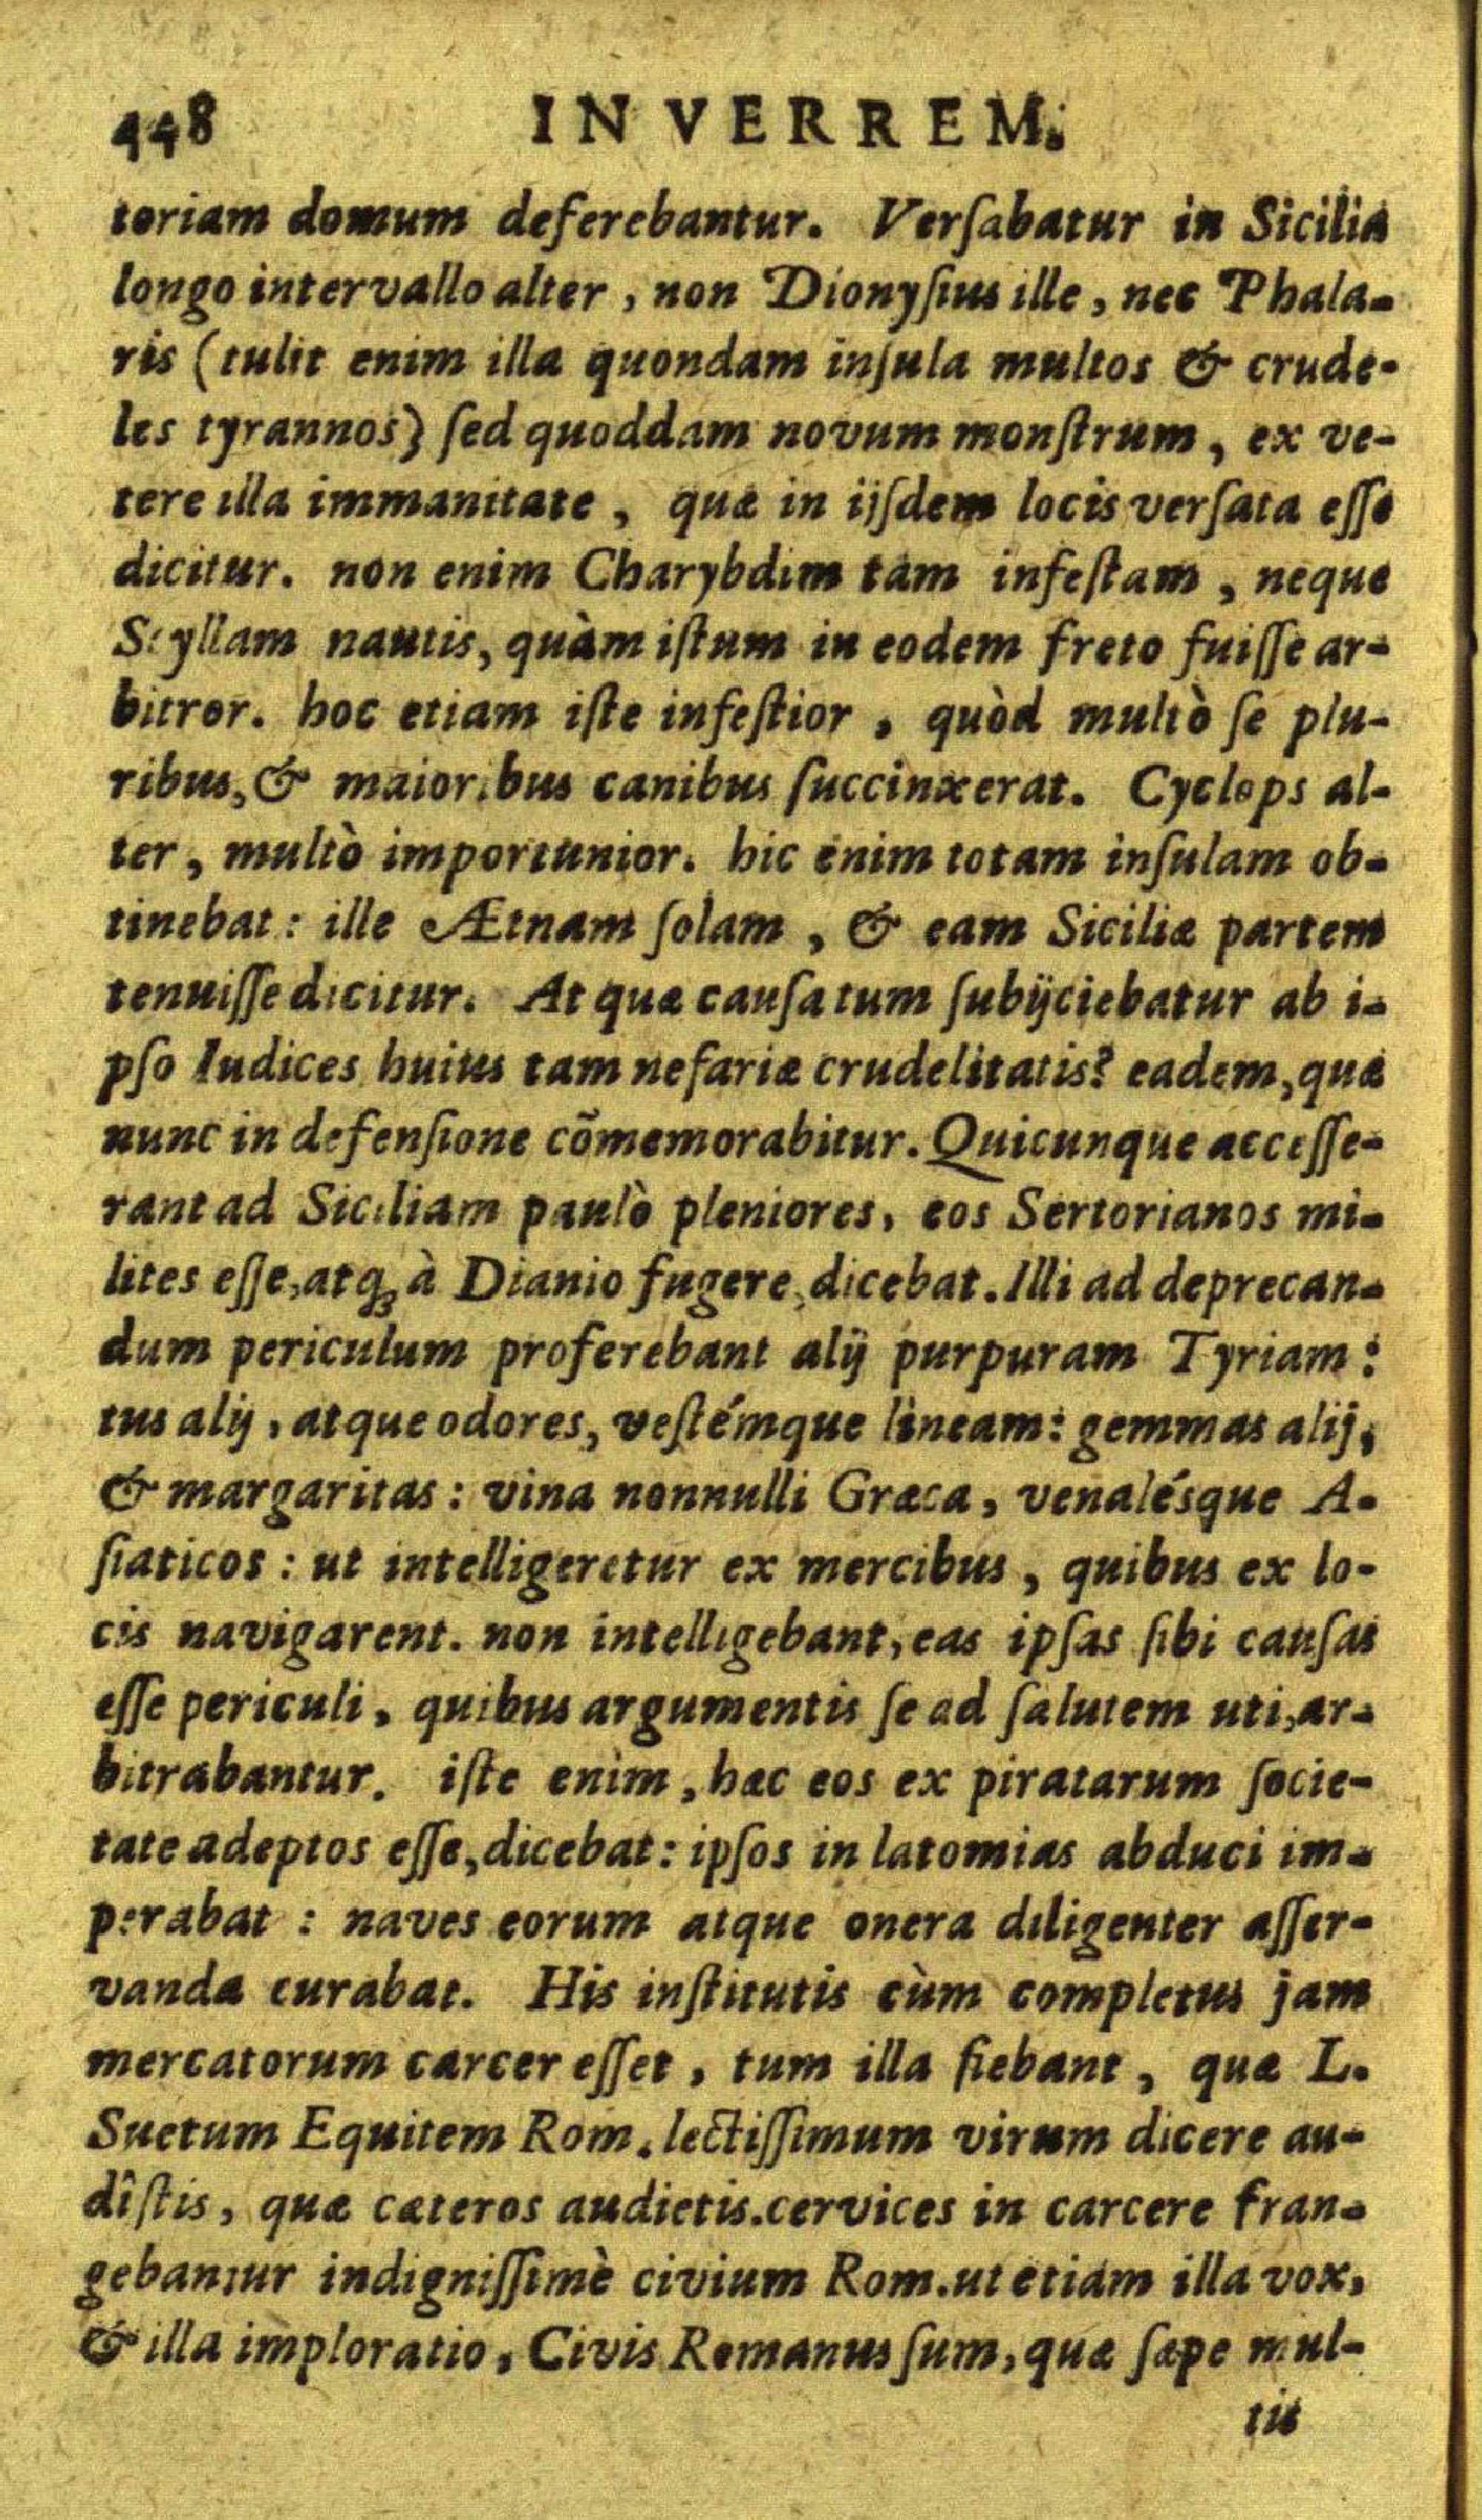 448 IN VERREM.
toriam domum deferebantur. Verſabatur in Sicilia
longo intervallo alter, non Dionyſius ille, nec Phala-
ris (tulit enim illa quondam inſula multos & crude-
les tyrannos) ſed quoddam novum monſtrum, ex ve-
tere illa immanitate, quæ in iiſdem locis verſata eſſe
dicitur. non enim Charybdim tam infeſtam, neque
Scyllam nautis, quàm iſtum in eodem freto fuiſſe ar-
bitror. hoc etiam iſte infeſtior, quòd multò ſe plu-
ribus, & maioribus canibus ſuccinxerat. Cyclops al-
ter, multò importunior. hic enim totam inſulam ob-
tinebat: ille Ætnam ſolam, & eam Siciliæ partem
tenuiſſe dicitur. At quæ cauſa tum ſubijciebatur ab i-
pſo Iudices huius tam nefariæ crudelitatis? eadem, quæ
nunc in defenſione cõmemorabitur. Quicunque acceſſe-
rant ad Siciliam paulò pleniores, eos Sertorianos mi-
lites eſſe, atq; à Dianio fugere, dicebat. Illi ad deprecan-
dum periculum proferebant alij purpuram Tyriam:
tus alij, atque odores, veſtémque lineam: gemmas alij,
& margaritas: vina nonnulli Græca, venalésque A-
ſiaticos: ut intelligeretur ex mercibus, quibus ex lo-
cis navigarent. non intelligebant, eas ipſas ſibi cauſas
eſſe periculi, quibus argumentis ſe ad ſalutem uti, ar-
bitrabantur. iſte enim, hæc eos ex piratarum ſocie-
tate adeptos eſſe, dicebat: ipſos in latomias abduci im-
perabat: naves eorum atque onera diligenter aſſer-
vanda curabat. His inſtitutis cùm completus jam
mercatorum carcer eſſet, tum illa fiebant, quæ L.
Suetum Equitem Rom. lectiſſimum virum dicere au-
dîſtis, quæ cæteros audietis. cervices in carcere fran-
gebantur indigniſſimè civium Rom. ut etiam illa vox,
& illa imploratio, Civis Romanus ſum, quæ ſæpe mul-
tis